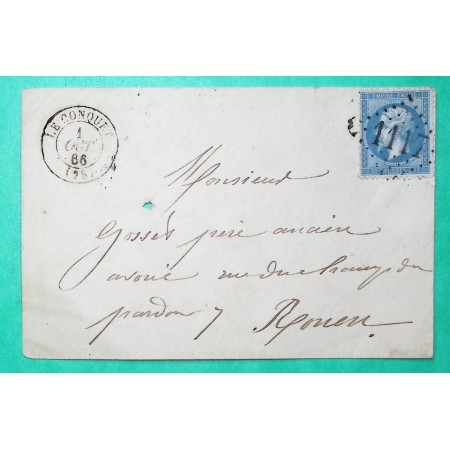 LE CONQUET
1
OCT
66
(28)
EMPIRE FRANC
111
Monsieur
Gossés père ancien
avoué rue du champ du
pardon 7 Rouen